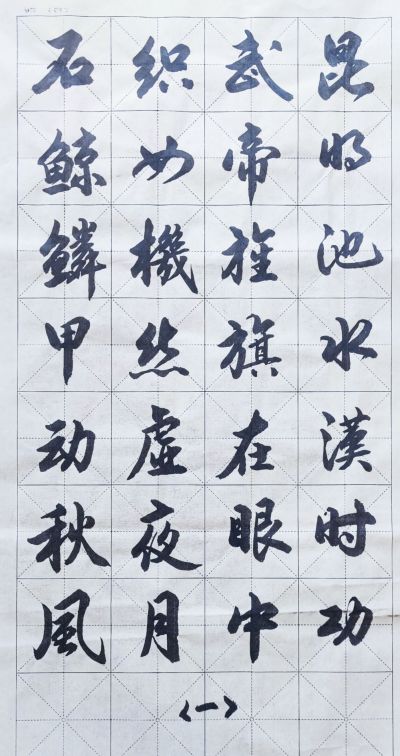 昆明池水漢时功
武帝旌旗在眼中
织女機丝虚夜月
石鲸鳞甲动秋風
〈一〉